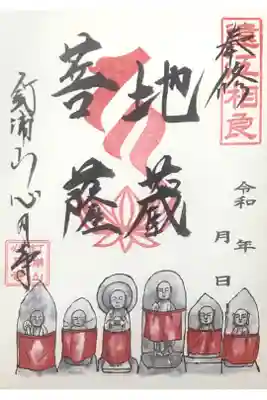 奉修
遠江相良
地蔵
菩薩
令和 年 月 日
浦山心月寺